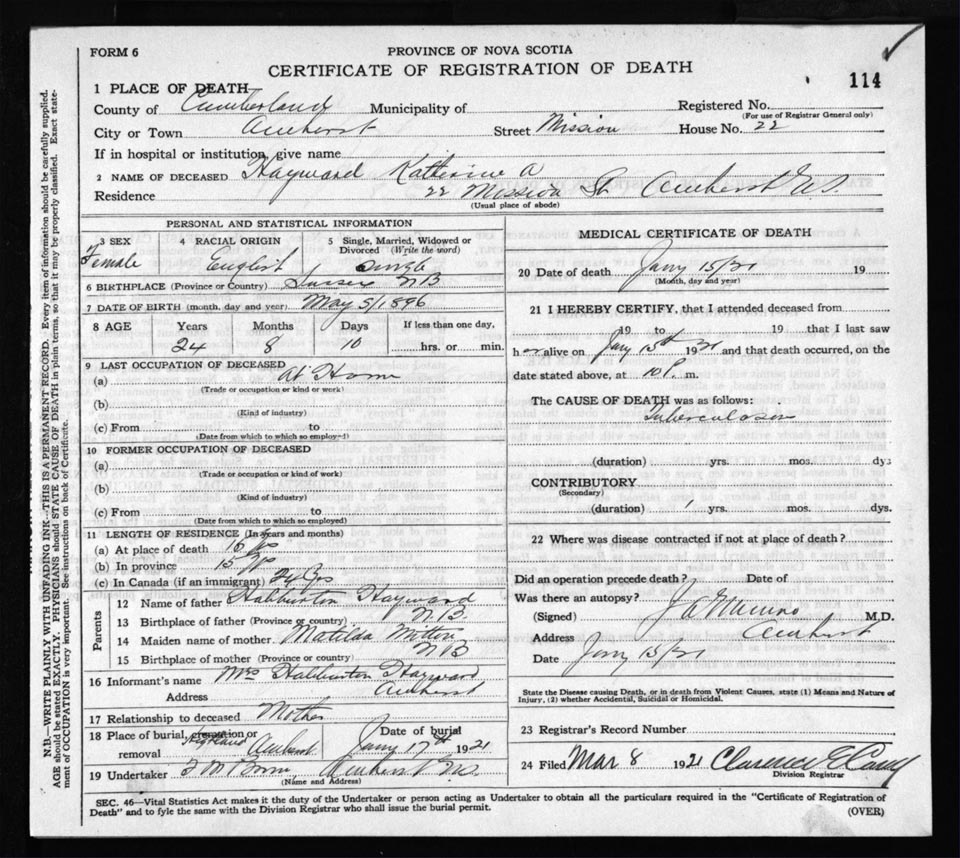 FORM 6
PROVINCE OF NOVA SCOTIA
CERTIFICATE OF REGISTRATION OF DEATH
114
1 PLACE OF DEATH
County of Cumberland Municipality of Registered No.
(For use of Registrar General only)
City or Town Amherst Street Mission House No. 22
If in hospital or institution, give name
2 NAME OF DECEASED Hayward Katherine A
Residence 22 Mission St Amherst N.S.
(Usual place of abode)
PERSONAL AND STATISTICAL INFORMATION
3 SEX 4 RACIAL ORIGIN 5 Single, Married, Widowed or Divorced (Write the word)
Female English Single
6 BIRTHPLACE (Province or Country) Sussex NB
7 DATE OF BIRTH (month, day and year) May 5/1896
8 AGE Years Months Days If less than one day,
24 8 10 hrs. or min.
9 LAST OCCUPATION OF DECEASED
(a) At Home
(Trade or occupation or kind or work)
(b)
(Kind of industry)
(c) From to
(Date from which to which so employed)
10 FORMER OCCUPATION OF DECEASED
(a)
(Trade or occupation or kind of work)
(b)
(Kind of industry)
(c) From to
(Date from which to which so employed)
11 LENGTH OF RESIDENCE (In years and months)
(a) At place of death 16 yrs
(b) In province 15 yrs
(c) In Canada (if an immigrant) 24 yrs
Parents
12 Name of father Haliburton Hayward
13 Birthplace of father (Province or country) N.B.
14 Maiden name of mother Matilda Mitton
15 Birthplace of mother (Province or country) NB
16 Informant's name Mrs Haliburton Hayward
Address Amherst
17 Relationship to deceased Mother
18 Place of burial, cremation or removal Highland Amherst Date of burial Jany 17th 1921
19 Undertaker Amherst N.S.
(Name and Address)
MEDICAL CERTIFICATE OF DEATH
20 Date of death Jany 15/21 19
(Month, day and year)
21 I HEREBY CERTIFY, that I attended deceased from
19 to 19 that I last saw
her alive on Jany 15th 1921 and that death occurred, on the
date stated above, at 10 P. m.
The CAUSE OF DEATH was as follows:
Tuberculosis
(duration) yrs. mos. dys
CONTRIBUTORY
(Secondary)
(duration) 1 yrs. mos. dys.
22 Where was disease contracted if not at place of death?
Did an operation precede death? Date of
Was there an autopsy?
(Signed) J A Munro M.D.
Address Amherst
Date Jany 15/21
State the Disease causing Death, or in death from Violent Causes, state (1) Means and Nature of Injury, (2) whether Accidental, Suicidal or Homicidal.
23 Registrar's Record Number
24 Filed Mar 8 1921 Clarence E Casey
Division Registrar
SEC. 46—Vital Statistics Act makes it the duty of the Undertaker or person acting as Undertaker to obtain all the particulars required in the "Certificate of Registration of
Death" and to fyle the same with the Division Registrar who shall issue the burial permit.
(OVER)
N.B.—WRITE PLAINLY WITH UNFADING INK—THIS IS A PERMANENT RECORD. Every item of information should be carefully supplied.
AGE should be stated EXACTLY. PHYSICIANS should STATE CAUSE OF DEATH in plain terms, so that it may be properly classified. Exact state-
ment of OCCUPATION is very important. See instructions on back of Certificate.